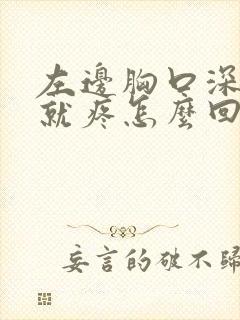 左邊胸口深
就疼怎麼回
妄言的破不歸